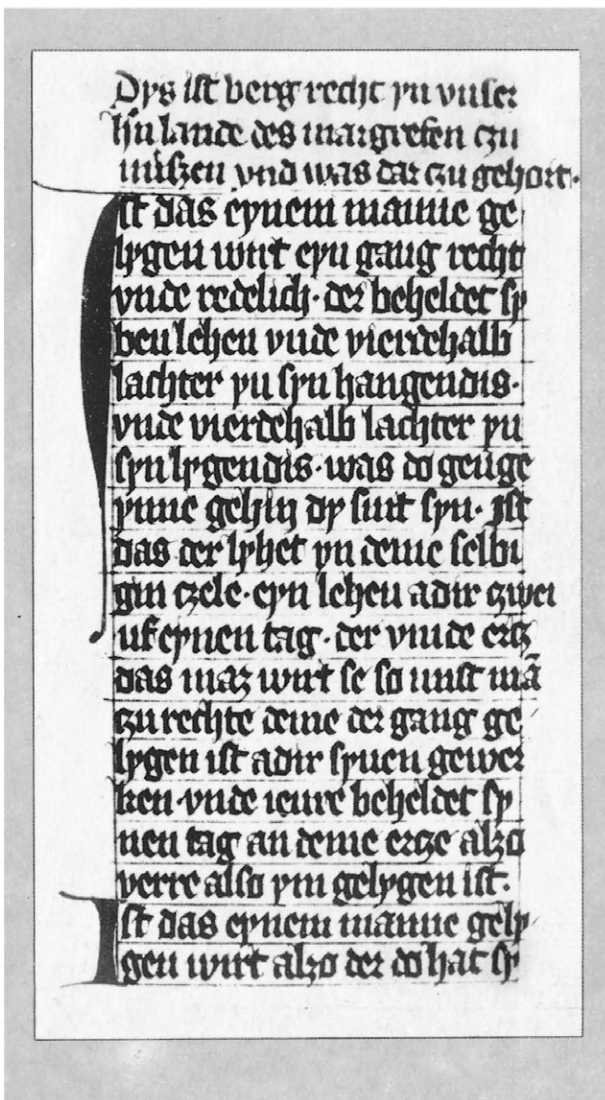 Dys ist berg recht yn vnser
hn̄ lande des margrefen czu
miszen vnd was dar czu gehort·
Ist das eynem manne ge
lygen wirt eyn gang recht
vnde redelich· der beheldet sy
ben lehen vnde vierdehalb
lachter yn syn hangendis·
vnde vierdehalb lachter yn
syn lygendis· was do genge
ynne gehin dy sint syn· Ist
das der lyhet yn deme selbi
gin czele· eyn lehen adir zwei
uf eynen tag· der vinde ercz
das maz wirt se so mist mā
zu rechte deme der gang ge
lygen ist adir synen gewer
ken· vnde ienre beheldet sy
nen tag an deme ercze alzo
verre also ym gelygen ist·
Ist das eynem manne gely
gen wirt alzo der do hat sy